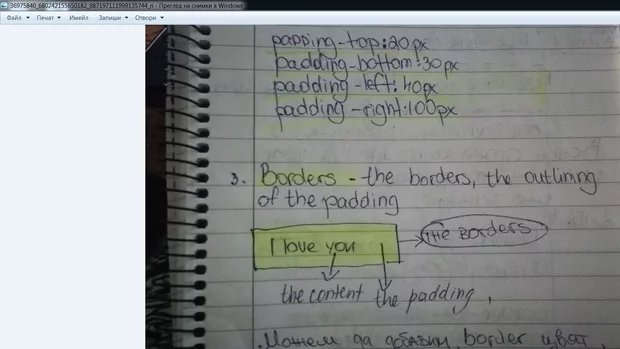 36975840_680242155650182_987197111999135744_n - Преглед на снимки в Windows
Файл Печат Имейл Запиши Отвори
padding-top:20px
padding-bottom:30px
padding-left:40px
padding-right:100px
3. Borders - the borders, the outlining
of the padding
I love you THE BORDERS
the content the padding,
Можем да добавим border цвят,